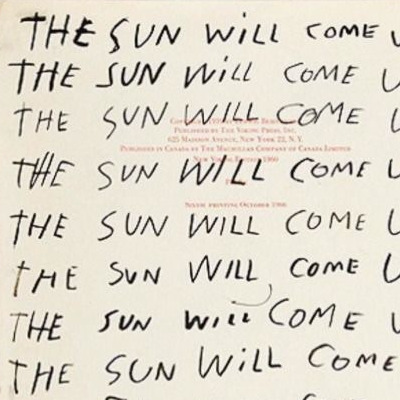 THE SUN WILL COME U
THE SUN WILL COME U
THE SUN WILL COME U
PUBLISHED BY THE VIKING PRESS, INC.
625 MADISON AVENUE, NEW YORK 22, N.Y.
PUBLISHED IN CANADA BY THE MACMILLAN COMPANY OF CANADA LIMITED
THE SUN WILL COME U
SIXTH PRINTING OCTOBER 1966
THE SUN WILL COME U
THE SUN WILL COME U
THE SUN WILL COME U
THE SUN WILL COME